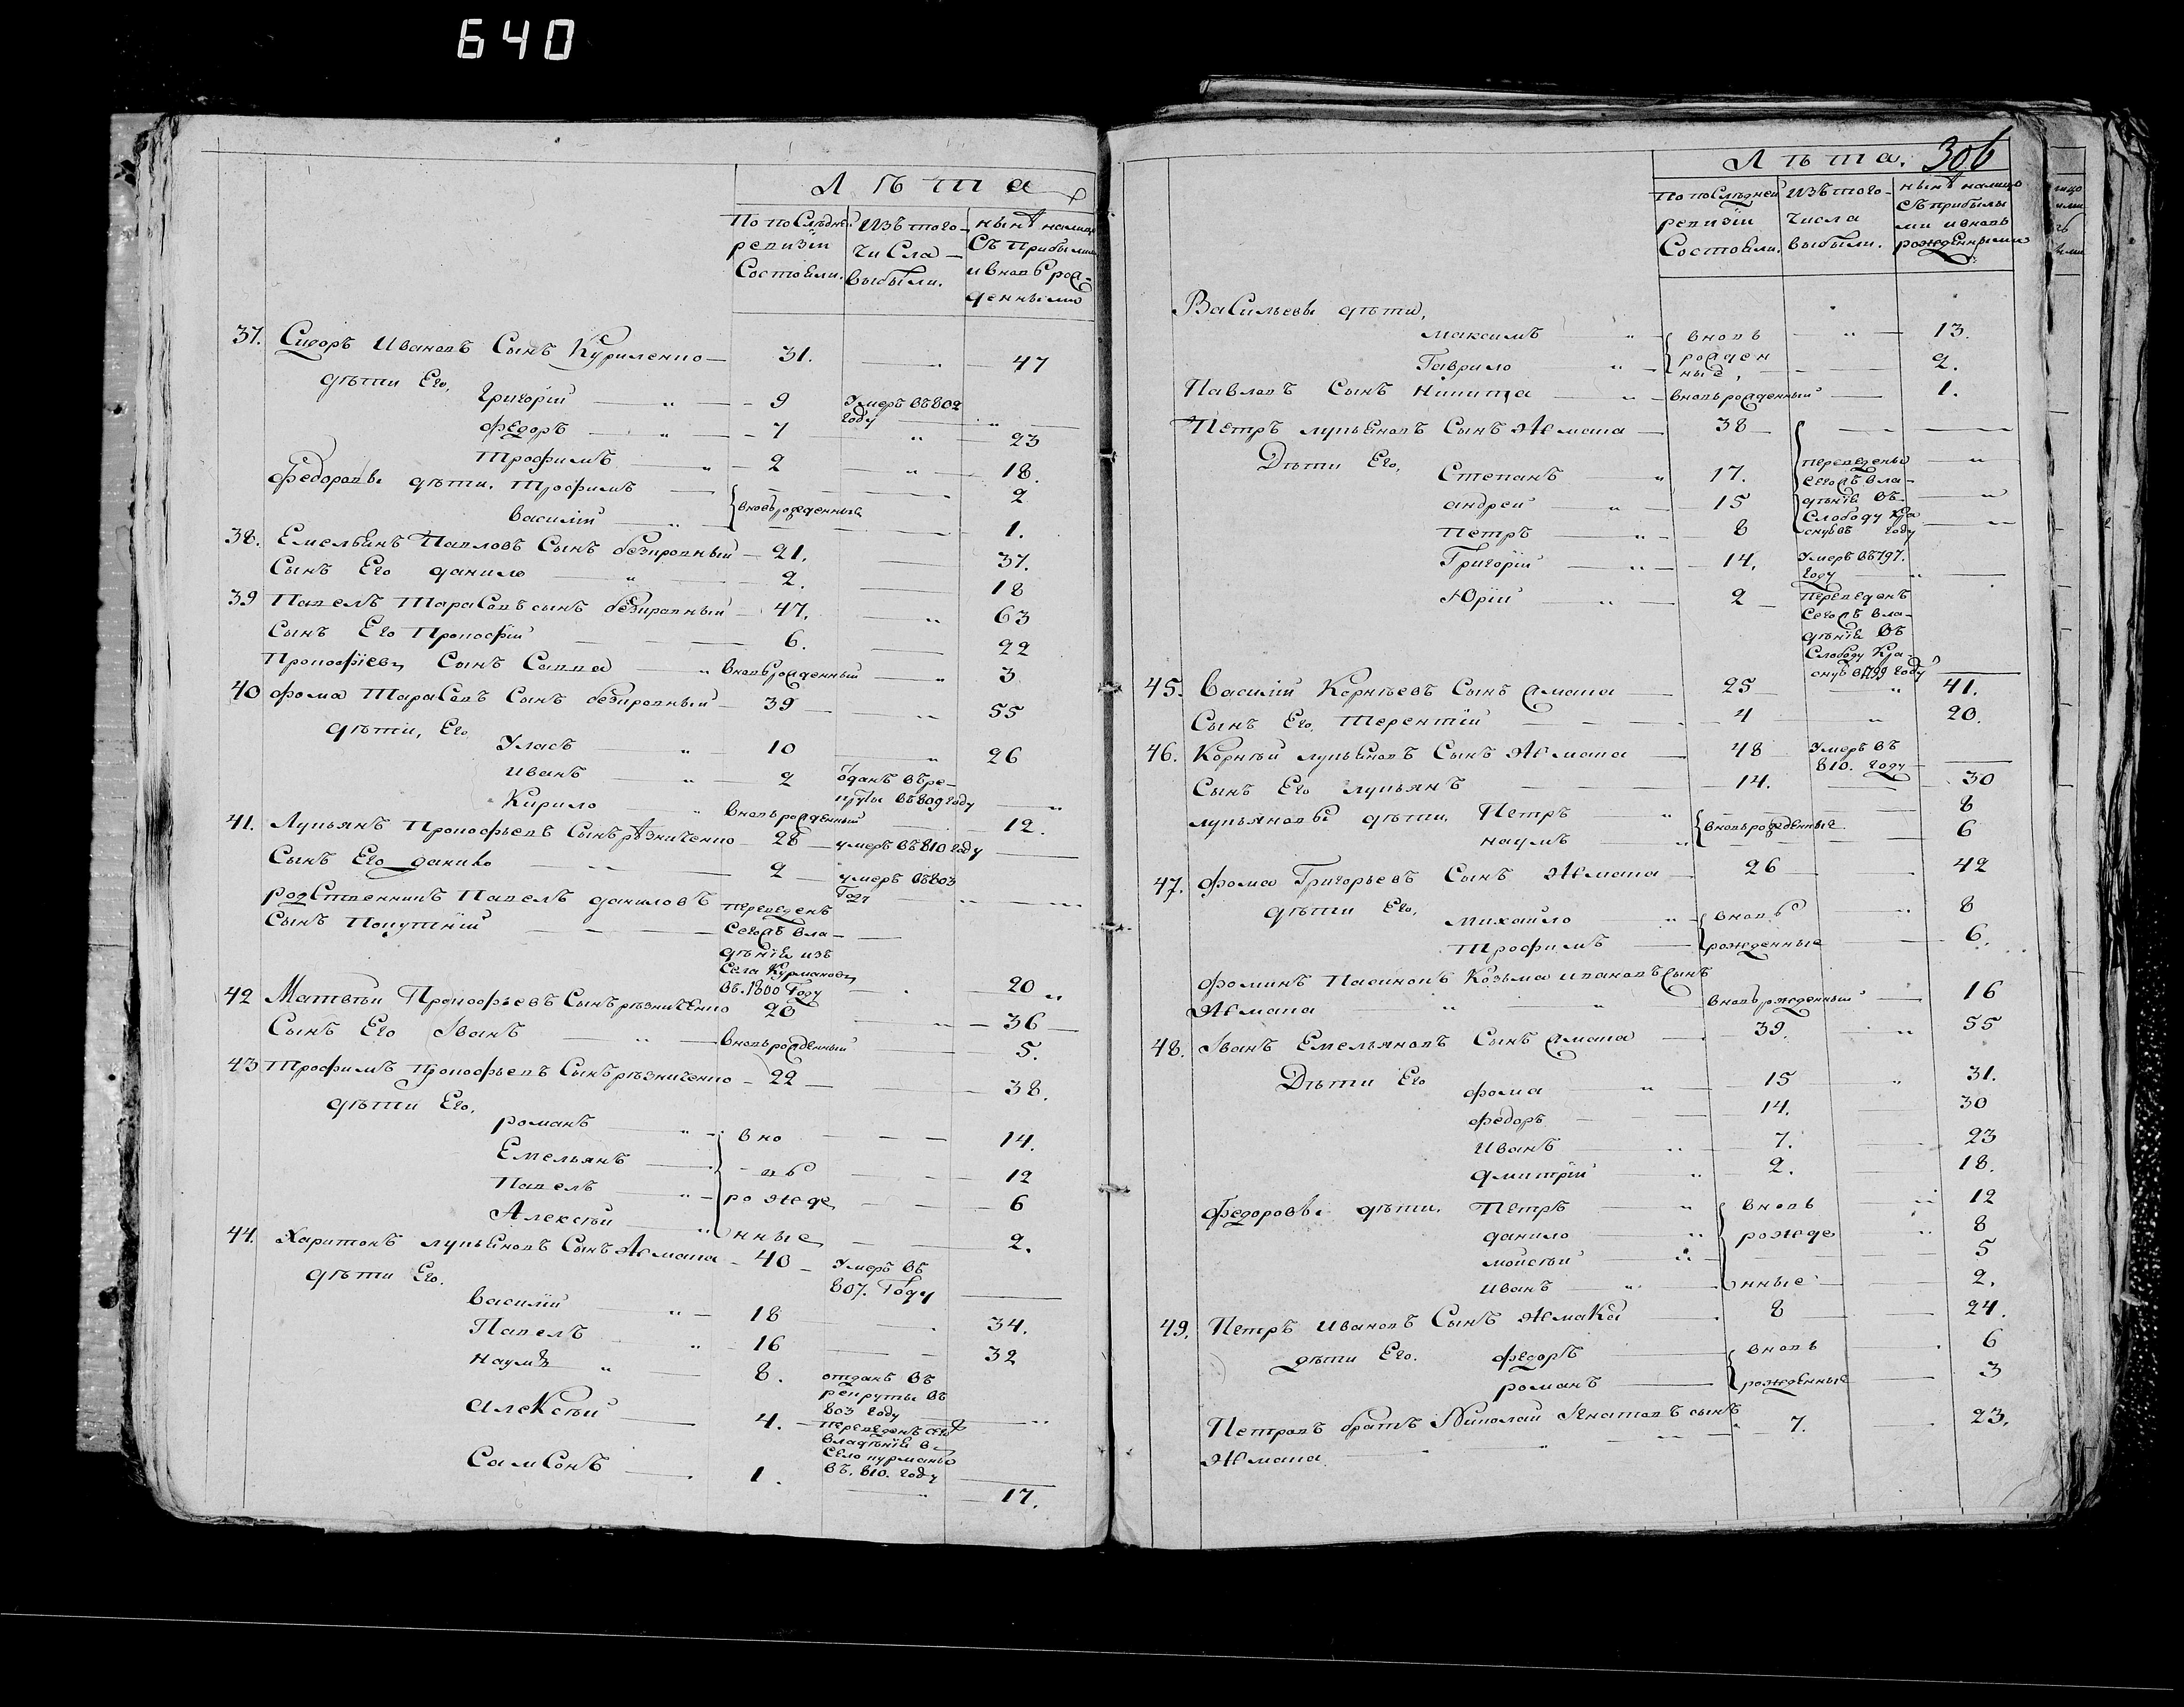 640
Лѣта
По послѣдней ревизіи состояли.
Изъ того числа выбыли.
нынѣ налицо съ прибылыми и вновь рожденными
37. Сидоръ Ивановъ Сынъ Куриленко — 31. — 47
дѣти Его,
Григорій — 9 умеръ въ 802 году
Федоръ — 7 — 23
Трофимъ — 2 — 18.
Федоровы дѣти, Трофимъ — 2
Василій — вновьрожденные — 1.
38. Емельянъ Павловъ Сынъ безпровный — 21. — 37.
Сынъ Его данило — 2. — 18
39 Павелъ Тарасовъ сынъ безпровный — 47. — 63
Сынъ Его Прокофій — 6. — 22
Прокофіевъ Сынъ Савва — вновьрожденный — 3
40 Фома Тарасовъ Сынъ безпровный — 39 — 55
дѣти, Его
Уласъ — 10 — 26
Иванъ — 2 отданъ въ рекруты въ 809 году
Кирило — вновьрожденный — 12.
41. Лукьянъ Прокофьевъ Сынъ рѣзниченко — 28 — умеръ въ 810 году
Сынъ Его данило — 2 — умеръ въ 803 Году
родственникъ Павелъ даниловъ
Сынъ Покутній — переведенъ
Сегожъ владѣнія изъ
Села Курмановъ
въ 1800 Году — 20
42 Матвѣй Прокофьевъ Сынъ рѣзниченко 20 — 36
Сынъ Его Іванъ — вновьрожденный — 5.
43 Трофимъ Прокофьевъ Сынъ рѣзниченко — 22 — 38.
дѣти Его,
романъ — вно — 14.
Емельянъ — вь — 12
Павелъ — рожде — 6
Алексѣй — нные — 2.
44. Харитонъ лукьяновъ Сынъ Жмака — 40 — умеръ въ 807. Году
дѣти Его.
Василій — 18 — 34.
Павелъ — 16 — 32
наумъ — 8. отданъ въ рекруты въ 803 году
Алексѣй — 4. — переведенъ сего владѣнія в село курманы въ 810. году
Самсонъ — 1. — 17.
Лѣта. 306
По послѣдней ревизіи Состояли.
Изъ того числа выбыли.
нынѣ налицо съ прибылыми и вновь рожденными
Васильевы дѣти,
максимъ — вновь — 13.
Гаврило — рожденные, — 2.
Павловъ Сынъ Никита — вновьрожденный — 1.
Петръ лукьяновъ Сынъ Жмака — 38
Дѣти Его, Степанъ — 17. переведены
Сегожъ вла-
андрей — 15 дѣнія въ
Слободу Кра
Петръ — 8 году
Григорій — 14. умеръ въ 797. году
Юрій — 2 — переведенъ
Сегожъ вла-
дѣнія въ
Слободу Кра-
въ 1799 году
45. Василій Корнѣевъ Сынъ Жмака — 25 — 41.
Сынъ Его, терентій — 4 — 20.
46. Корнѣй лукьяновъ Сынъ Жмака — 48 умеръ въ 810. году
Сынъ Его лукьянъ — 14. — 30
лукьяновы дѣти, Петръ — 8
наумъ — вновьрожденные — 6
47. Фома Григорьевъ Сынъ Жмака — 26 — 42
дѣти Его, михайло — вновь — 8
Трофимъ — рожденные — 6.
Фоминъ Пасинокъ Козьма ивановъ Сынъ
Жмака — вновьрожденный — 16
48. Іванъ Емельяновъ Сынъ Жмака — 39. — 55
Дѣти Его фома — 15 — 31.
федоръ — 14. — 30
Иванъ — 7. — 23
дмитрій — 2. — 18.
Федоровы дѣти, Петръ — вновь — 12
данило — рожде — 8
мойсѣй — 5
иванъ — нные — 2.
49. Петръ Ивановъ Сынъ Жмака — 8 — 24.
дѣти Его. федоръ — вновь — 6
романъ — рожденные — 3
Петровъ братъ Николай Игнатовъ сынъ — 7. — 23.
Жмака